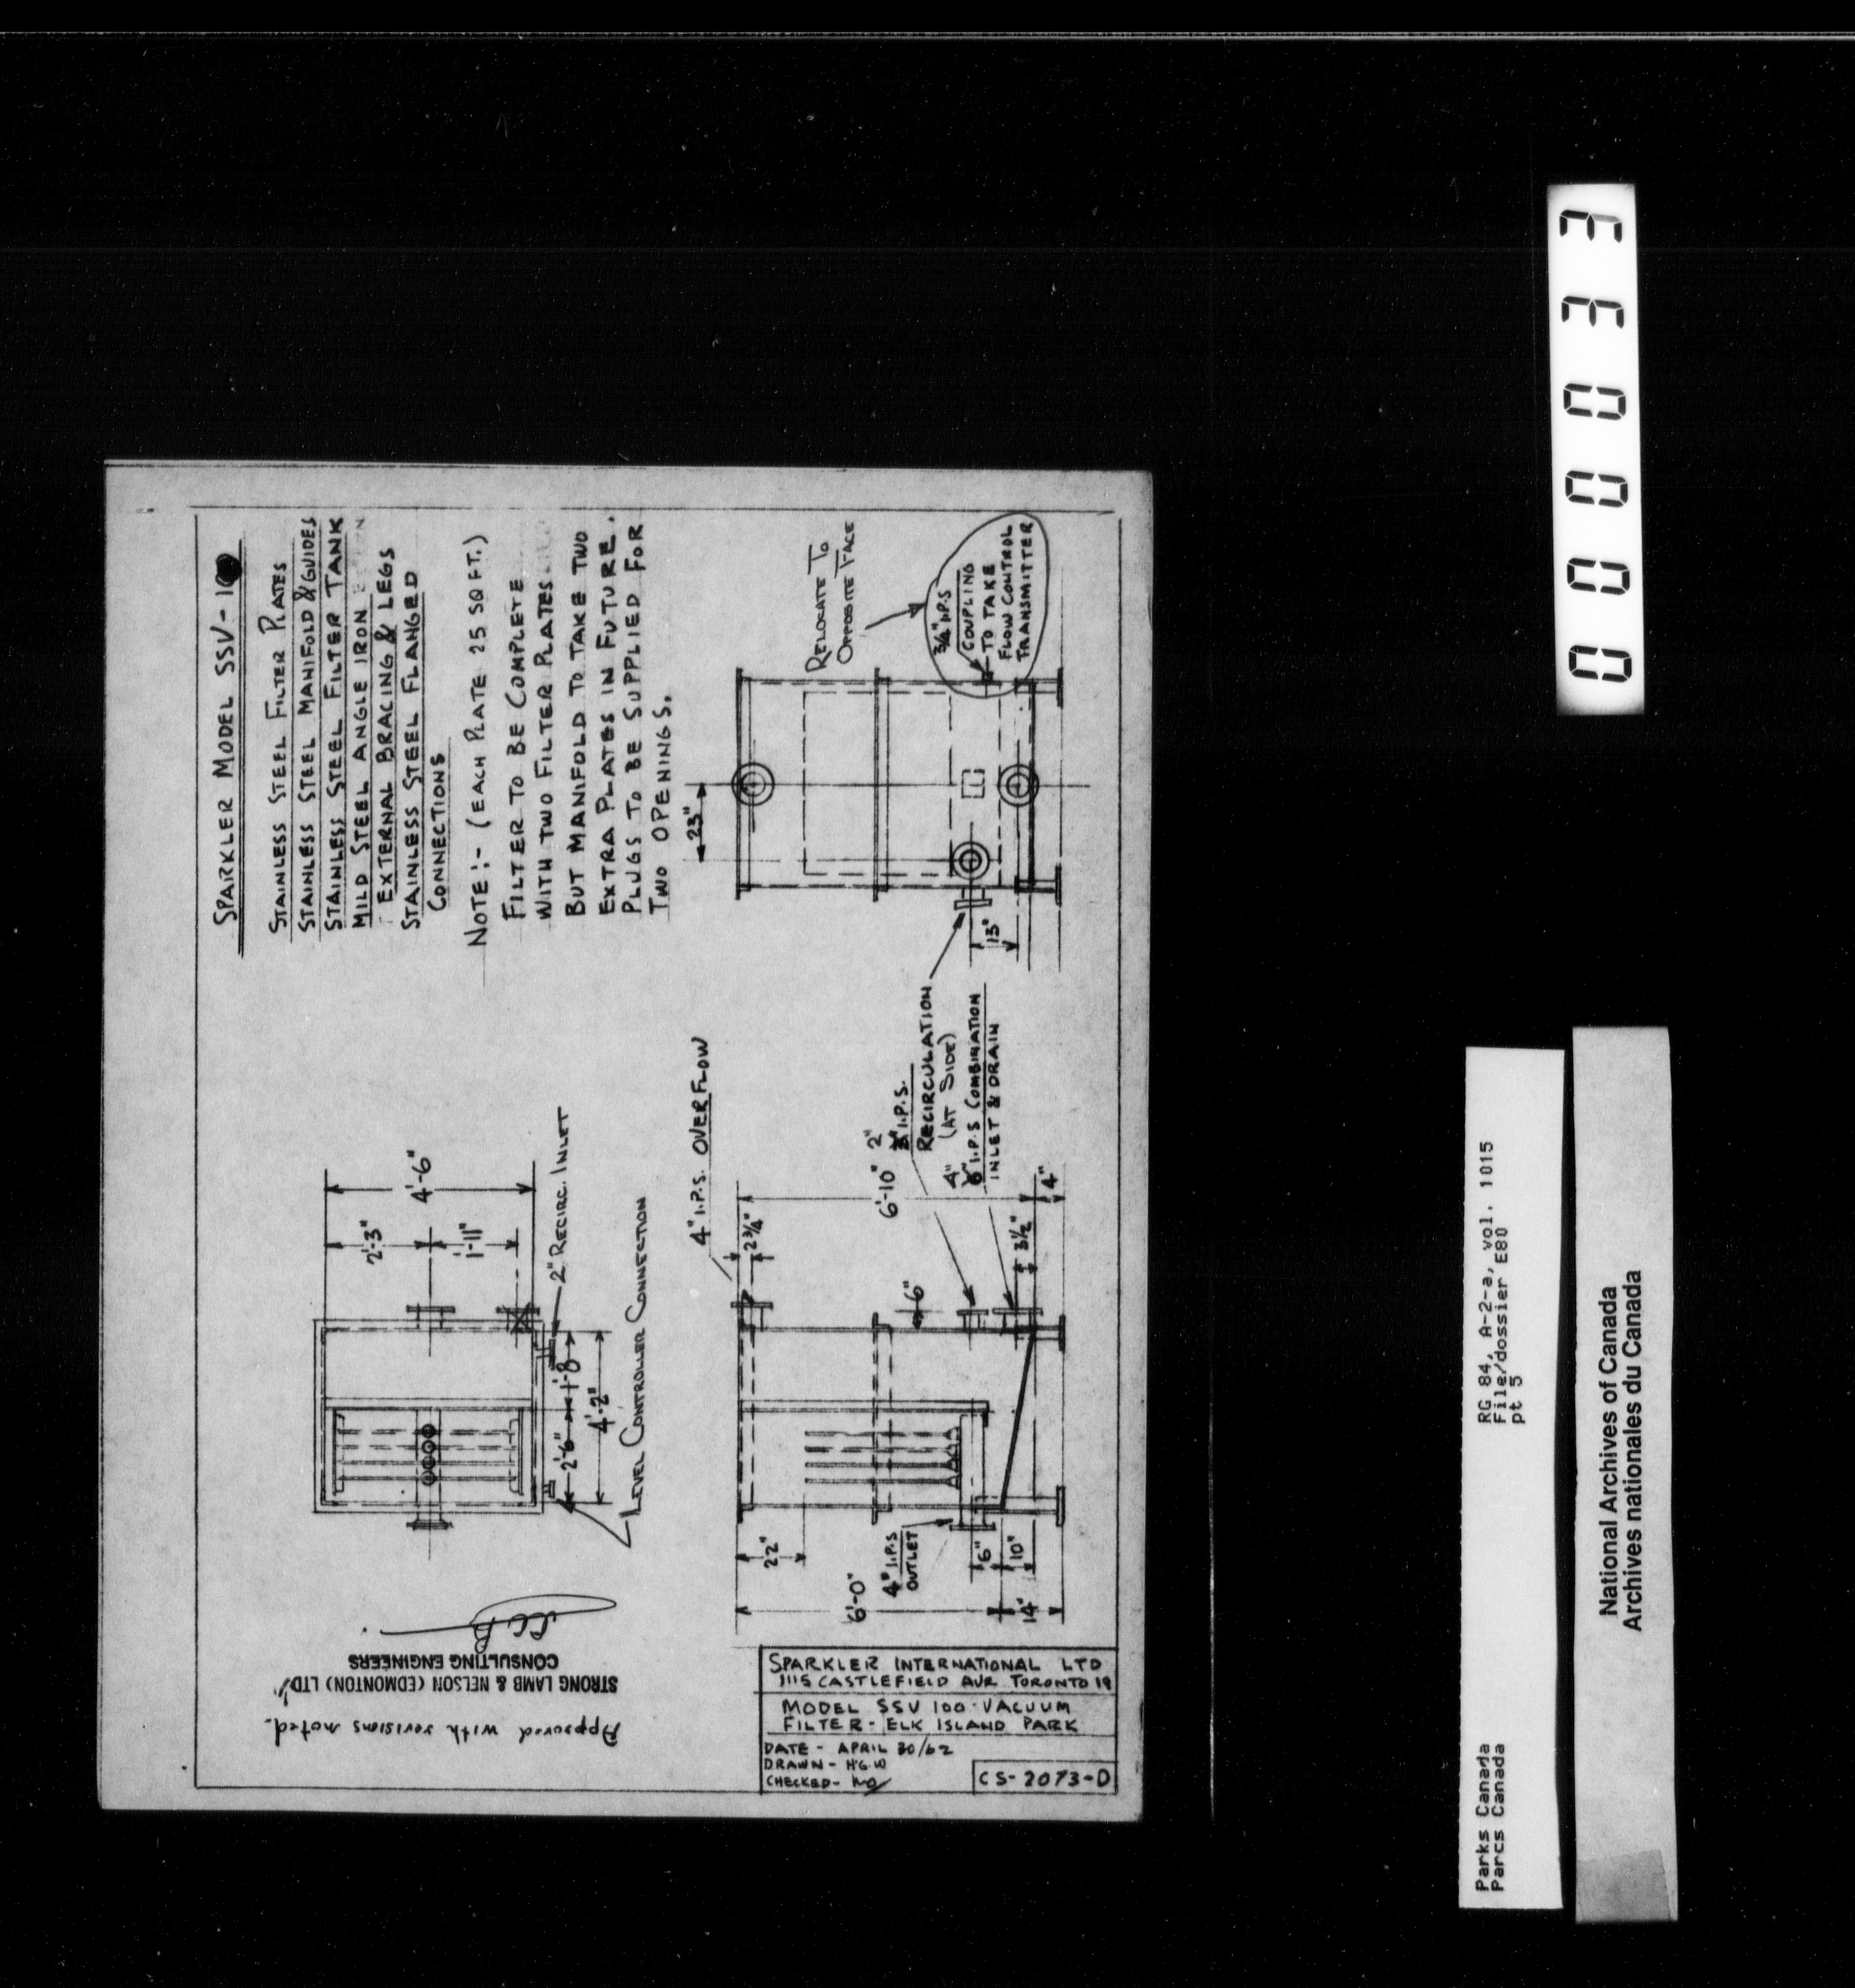 SPARKLER MODEL SSV-10
STAINLESS STEEL FILTER PLATES
STAINLESS STEEL MANIFOLD & GUIDES
STAINLESS STEEL FILTER TANK
MILD STEEL ANGLE IRON
EXTERNAL BRACING & LEGS
STAINLESS STEEL FLANGED
CONNECTIONS
NOTE:- (EACH PLATE 25 SQ FT.)
FILTER TO BE COMPLETE
WITH TWO FILTER PLATES
BUT MANIFOLD TO TAKE TWO
EXTRA PLATES IN FUTURE.
PLUGS TO BE SUPPLIED FOR
TWO OPENINGS.
4'-6"
2'-3"
1'-11"
2" RECIRC. INLET
2'-6"
1'-8
4'-2"
LEVEL CONTROLLER CONNECTION
4" I.P.S. OVERFLOW
2 3/4"
6'-10"
2"
I.P.S.
RECIRCULATION
(AT SIDE)
4"
I.P.S COMBINATION
INLET & DRAIN
6"
3 1/2"
4"
22"
6'-0"
4" I.P.S
OUTLET
6"
10"
14"
23"
13"
RELOCATE TO
OPPOSITE FACE
3/4" I.P.S
COUPLING
TO TAKE
FLOW CONTROL
TRANSMITTER
Approved with revisions noted.
STRONG LAMB & NELSON (EDMONTON) LTD.
CONSULTING ENGINEERS
SPARKLER INTERNATIONAL LTD
1115 CASTLEFIELD AVE TORONTO 19
MODEL SSV 100 VACUUM
FILTER - ELK ISLAND PARK
DATE - APRIL 30/62
DRAWN - H.G.W
CHECKED-
CS-2073-D
00003 3
Parks Canada
Parcs Canada
RG 84, A-2-a, vol. 1015
File/dossier E80
pt 5
National Archives of Canada
Archives nationales du Canada